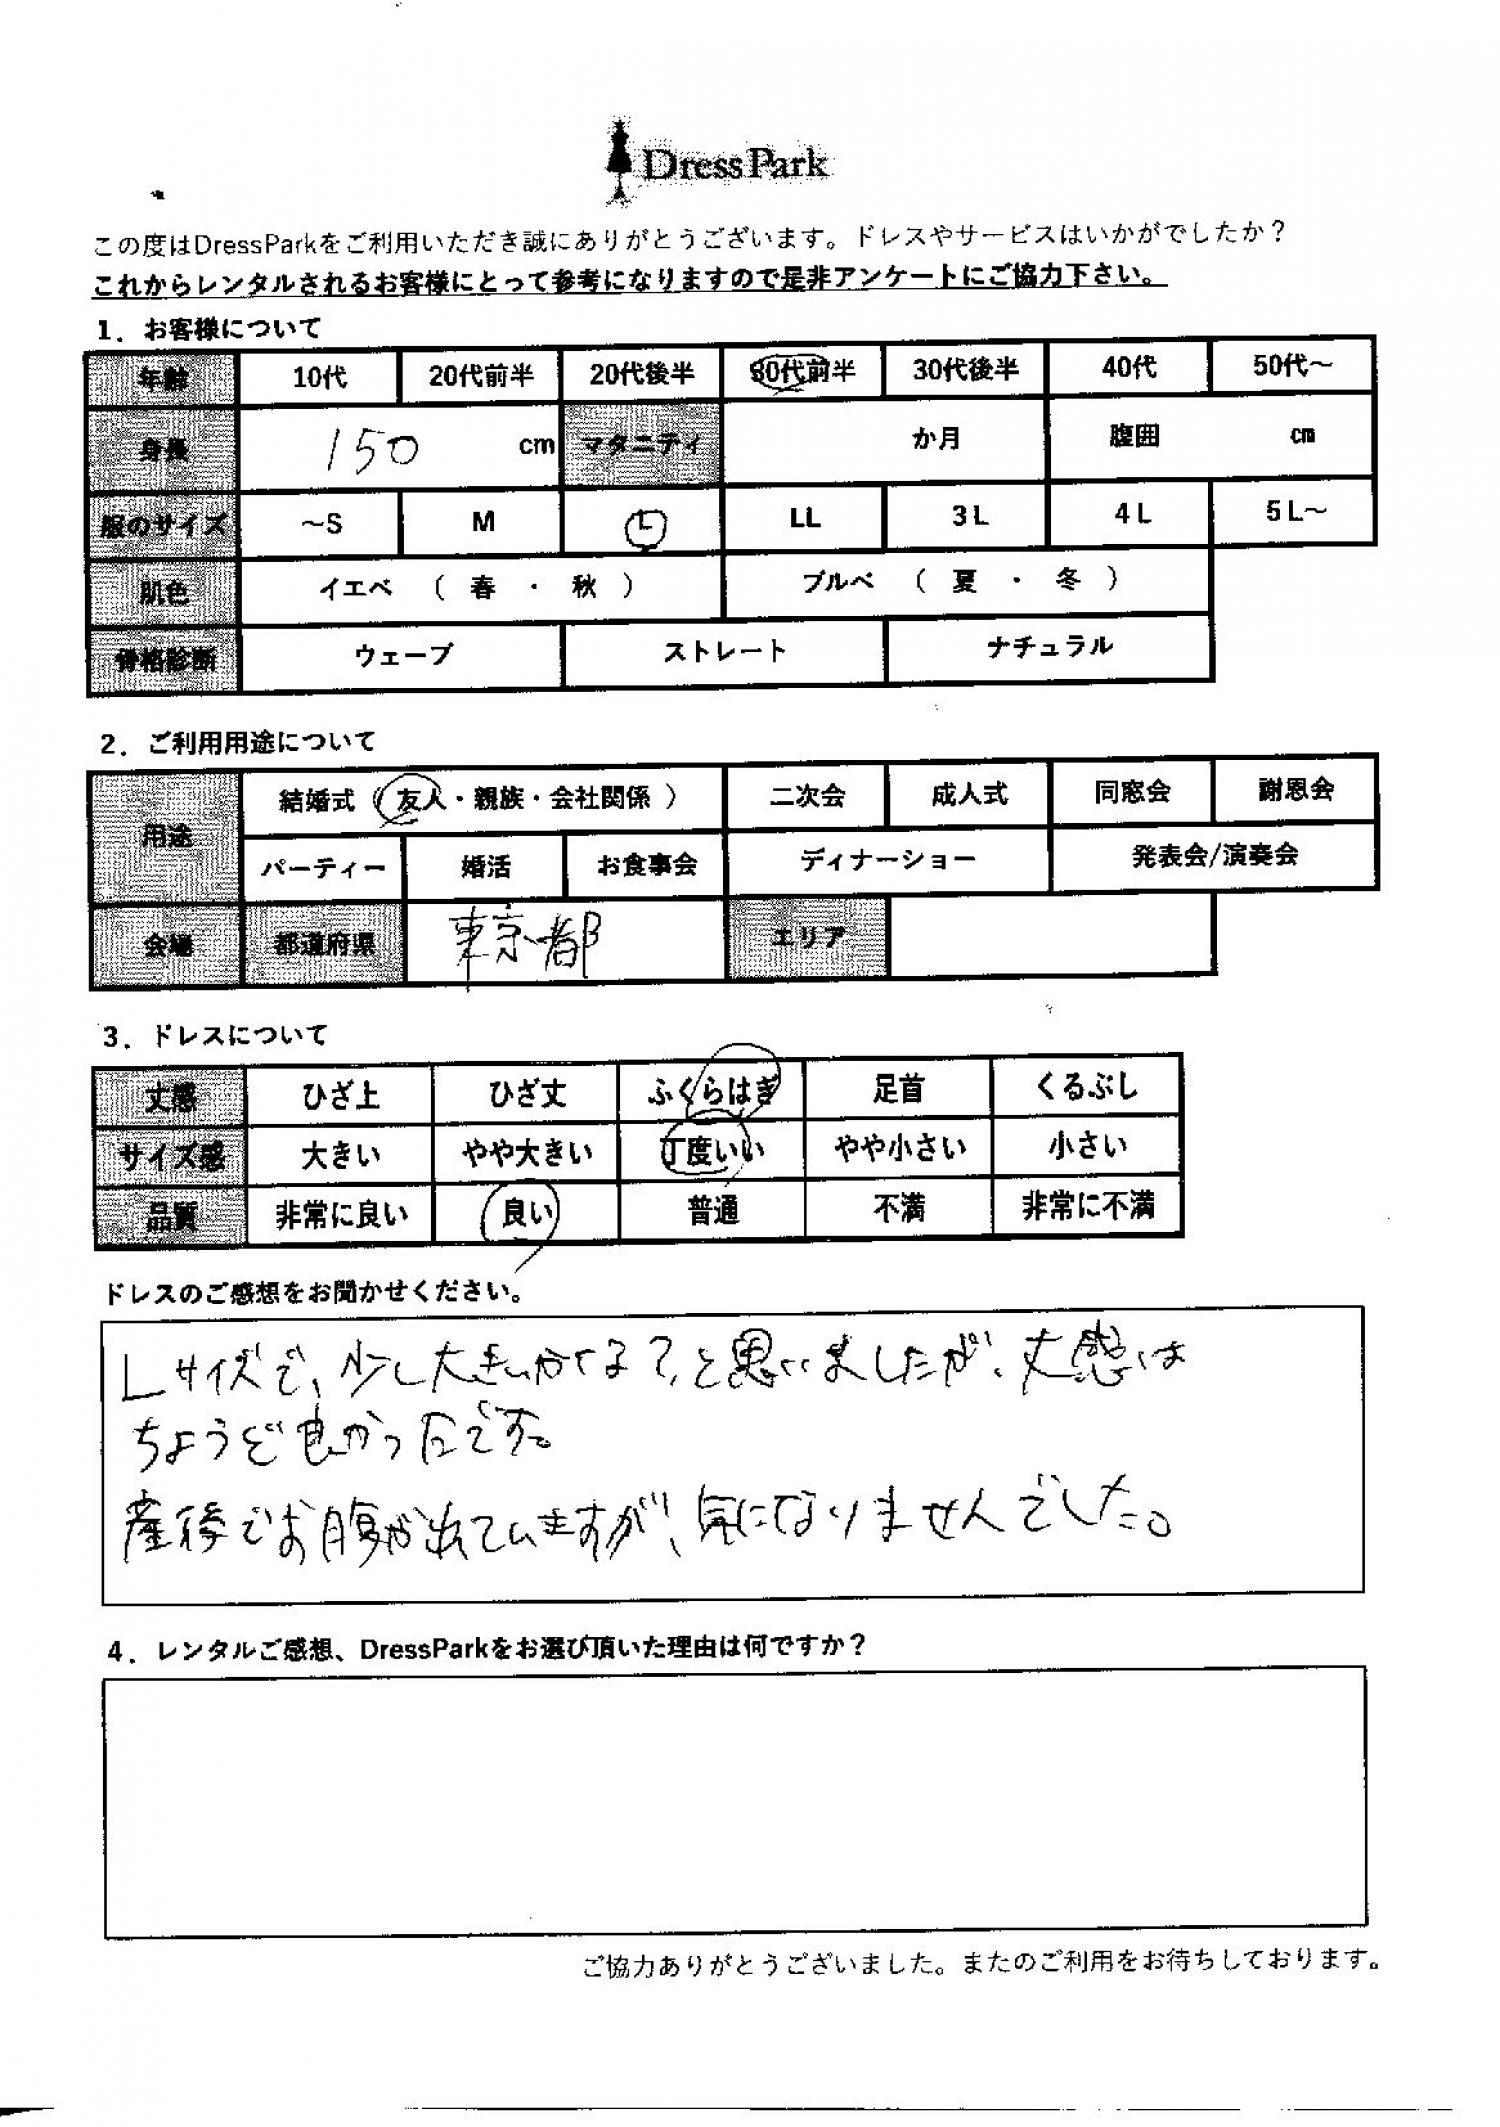 DressPark
この度はDressParkをご利用いただき誠にありがとうございます。ドレスやサービスはいかがでしたか？
これからレンタルされるお客様にとって参考になりますので是非アンケートにご協力下さい。
1．お客様について
年齢 10代 20代前半 20代後半 30代前半 30代後半 40代 50代～
身長 150 cm マタニティ か月 腹囲 cm
服のサイズ ～S M L LL 3L 4L 5L～
肌色 イエベ （ 春 ・ 秋 ） ブルベ （ 夏 ・ 冬 ）
骨格診断 ウェーブ ストレート ナチュラル
2．ご利用用途について
用途 結婚式（友人・親族・会社関係 ） 二次会 成人式 同窓会 謝恩会
パーティー 婚活 お食事会 ディナーショー 発表会/演奏会
会場 都道府県 東京都 エリア
3．ドレスについて
丈感 ひざ上 ひざ丈 ふくらはぎ 足首 くるぶし
サイズ感 大きい やや大きい 丁度いい やや小さい 小さい
品質 非常に良い 良い 普通 不満 非常に不満
ドレスのご感想をお聞かせください。
Lサイズで、少し大きいかな？と思いましたが、丈感は
ちょうど良かったです。
産後でお腹が出ていますが、気になりませんでした。
4．レンタルご感想、DressParkをお選び頂いた理由は何ですか？
ご協力ありがとうございました。またのご利用をお待ちしております。